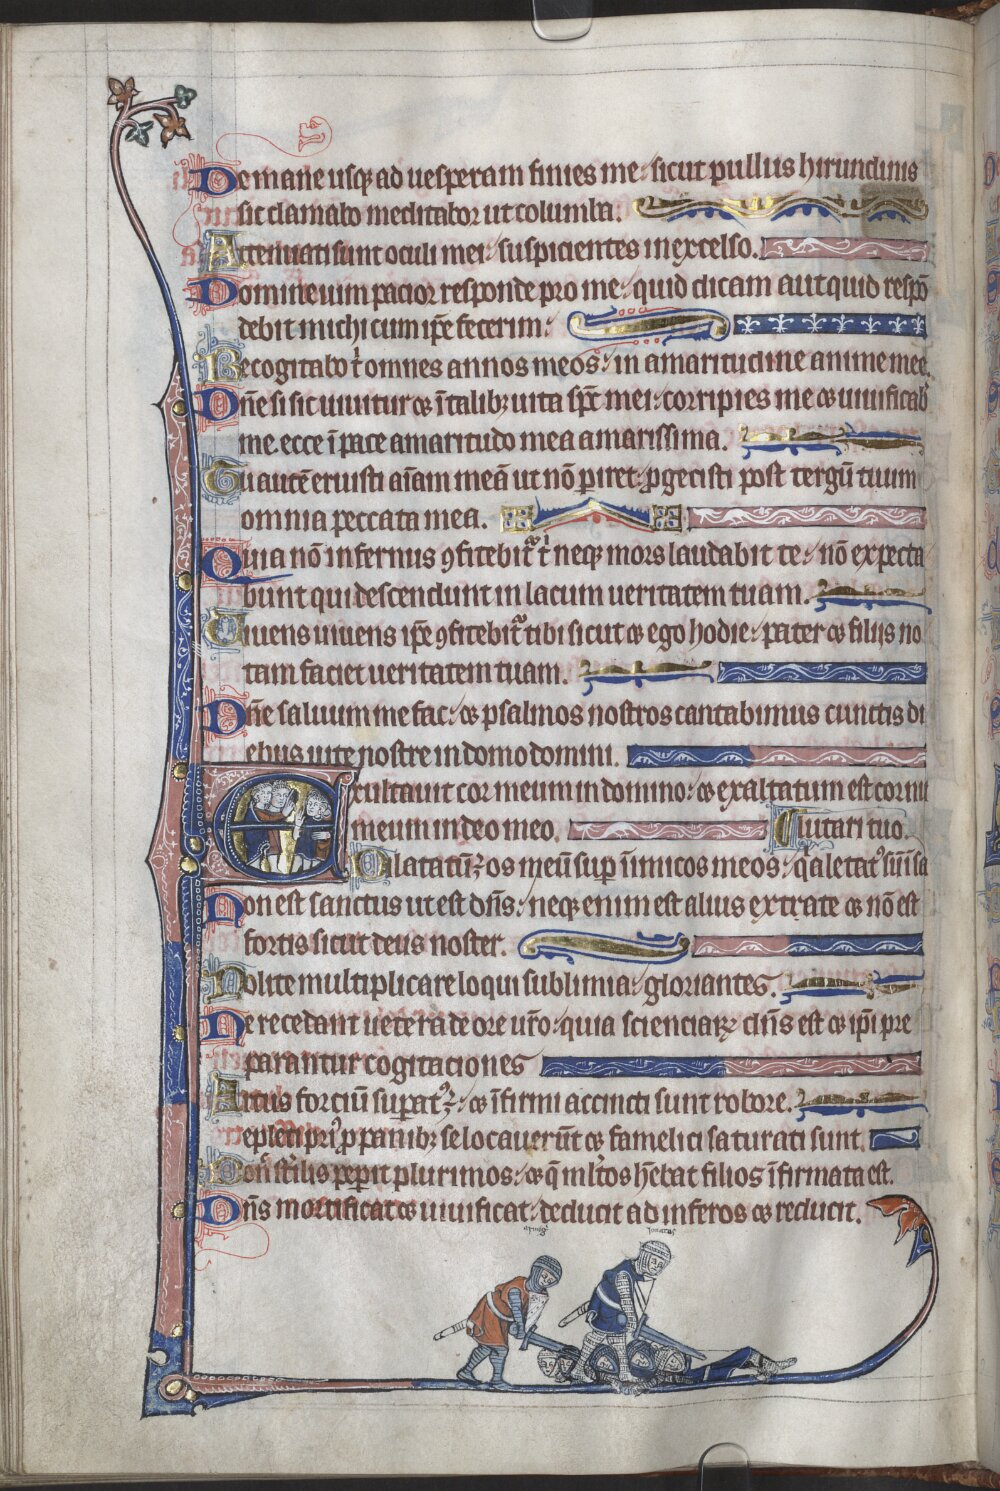 De mane usqȝ ad uesperam finies me: sicut pullus hirundinis
sic clamabo meditabor ut columba.
Attenuati sunt oculi mei: suspicientes in excelso.
Domine uim pacior responde pro me: quid dicam aut quid respō
debit michi cum ip̄e fecerim:
Recogitabo t̄ omnes annos meos: in amaritudine anime mee.
Dn̄e si sic uiuitur ⁊ ī talibȝ uita sp̄c mei: corripies me ⁊ uiuificab
me. ecce ī pace amaritudo mea amarissima.
Tu autē eruisti aīam meā ut nō ꝑiret: ꝓgecisti post tergū tuum
omnia peccata mea.
Quia nō infernus ꝯfitebit̄ t̄ neqȝ mors laudabit te: nō expecta
bunt qui descendunt in lacum ueritatem tuam.
Uiuens uiuens ip̄e ꝯfitebit̄ tibi sicut ⁊ ego hodie: pater ⁊ filiis no
tam faciet ueritatem tuam.
Dn̄e saluum me fac: ⁊ psalmos nostros cantabimus cunctis di
ebus uite nostre in domo domini.
Exultauit cor meum in domino: ⁊ exaltatum est cornu
meum in deo meo. lutari tuo.
Dilatatū ē os meū suꝑ īimicos meos: q̄a letat᷒ sū ī sa
Non est sanctus ut est dn̄s: neqȝ enim est alius extra te ⁊ nō est
fortis sicut deus noster.
Nolite multiplicare loqui sublimia: gloriantes.
Ne recedant uetera de ore ur̄o: quia scienciaꝝ dn̄s est ⁊ ip̄i pre
parantur cogitaciones
Arcus forciū suꝑat᷒ ē: ⁊ īfirmi accincti sunt robore.
epleti pri᷒ ꝓ panibȝ se locauerūt ⁊ famelici saturati sunt.
Don̄ st̄ilis peꝑit plurimos: ⁊ q̄ ml̄tos hēbat filios īfirmata est.
Dn̄s mortificat ⁊ uiuificat: deducit ad inferos ⁊ reducit.
Jonatas